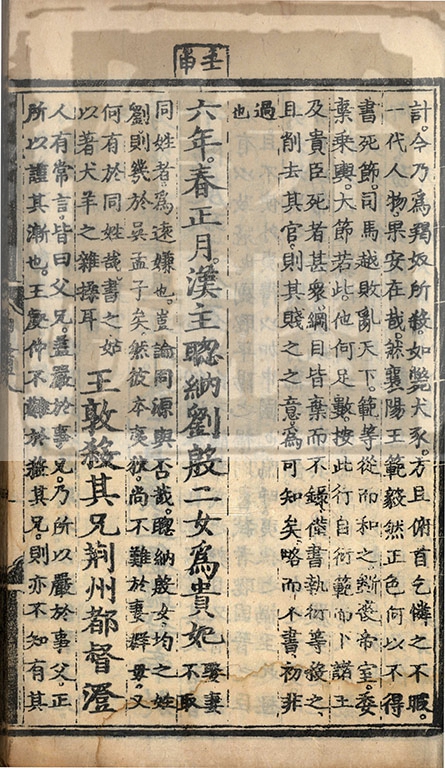 壬申
計。今乃爲羯奴所殺。如斃犬豕。方且俯首乞憐之不暇。
一代人物。果安在哉。然襄陽王範毅然正色。何以不得
書死節。司馬越敗亂天下。範等從而和之。斲喪帝室。委
棄乘輿。大節若此。他何足數。按此行自衍範而卜諸王
及貴臣死者甚衆。綱目皆棄而不錄。僅書執衍等殺之。
且削去其官。則其賤之之意。爲可知矣。略而不書。初非
過
也
六年。春正月。漢主聰納劉殷二女爲貴妃
娶妻
不取
同姓者。爲遠嫌也。豈論同源與否哉。聰納殷女。均之姓
劉。則幾於吳孟子矣。然彼本夷狄。尚不難於妻群母。又
何有於同姓哉。書之姑
以著犬羊之雜揉耳
王敦殺其兄荆州都督澄
人有常言。皆曰父兄。蓋嚴於事兄。乃所以嚴於事父。正
所以謹其漸也。王敦仰不難於殺其兄。則亦不知有其